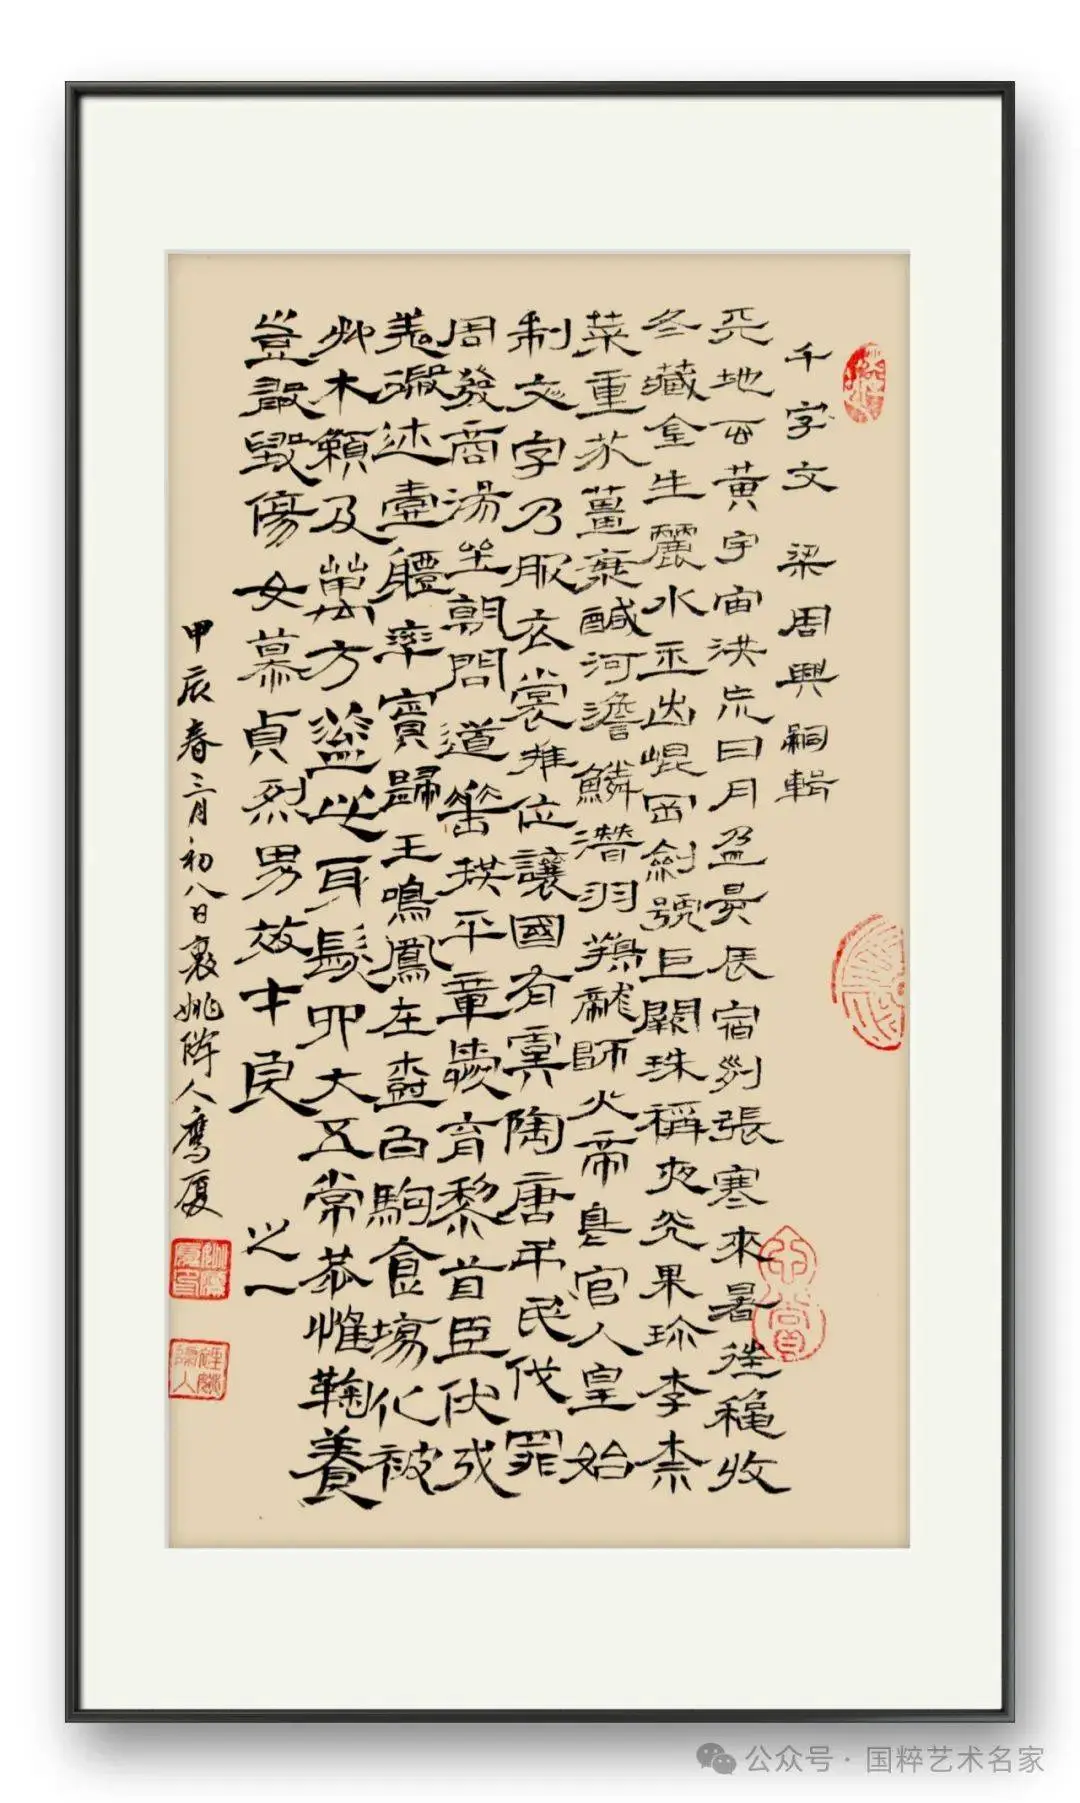 千字文 梁周興嗣輯
天地玄黃宇宙洪荒日月盈昃辰宿列張寒來暑往穐收
冬藏金生麗水玉出崐岡劍號巨闕珠稱夜光果珍李柰
菜重芥薑海鹹河澹鱗潛羽翔龍師火帝鳥官人皇始
制文字乃服衣裳推位讓國有虞陶唐弔民伐罪
周發商湯坐朝問道垂拱平章愛育黎首臣伏戎
羌遐邇壹體率賓歸王鳴鳳在樹白駒食場化被
艸木賴及萬方蓋此身髮四大五常恭惟鞠養
豈敢毀傷女慕貞烈男效才良 之一
甲辰春三月初八日襄姚人鹰厦
公众号·国粹艺术名家